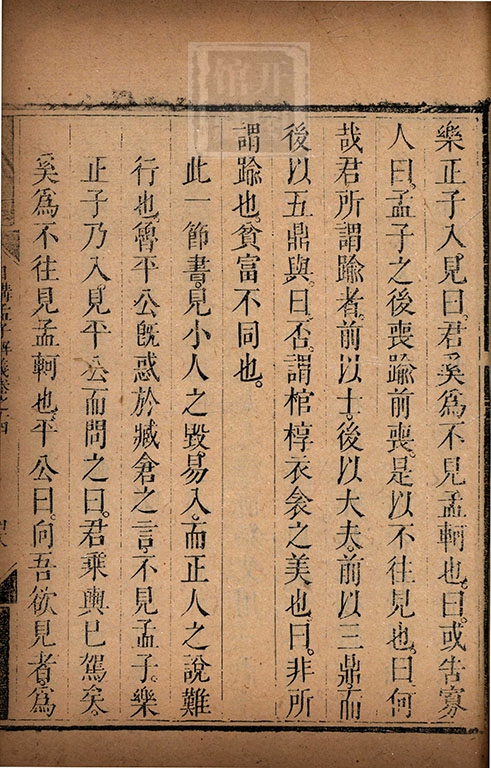 樂正子入見曰君奚爲不見孟軻也曰或告寡
人曰孟子之後喪踰前喪是以不往見也曰何
哉君所謂踰者前以士後以大夫前以三鼎而
後以五鼎與曰否謂棺椁衣衾之美也曰非所
謂踰也貧富不同也
此一節書見小人之毀易入而正人之說難
行也魯平公旣惑於臧倉之言不見孟子樂
正子乃入見平公而問之曰君乘輿已駕矣
奚爲不往見孟軻也平公曰向吾欲見者爲
日講孟子解義卷之四